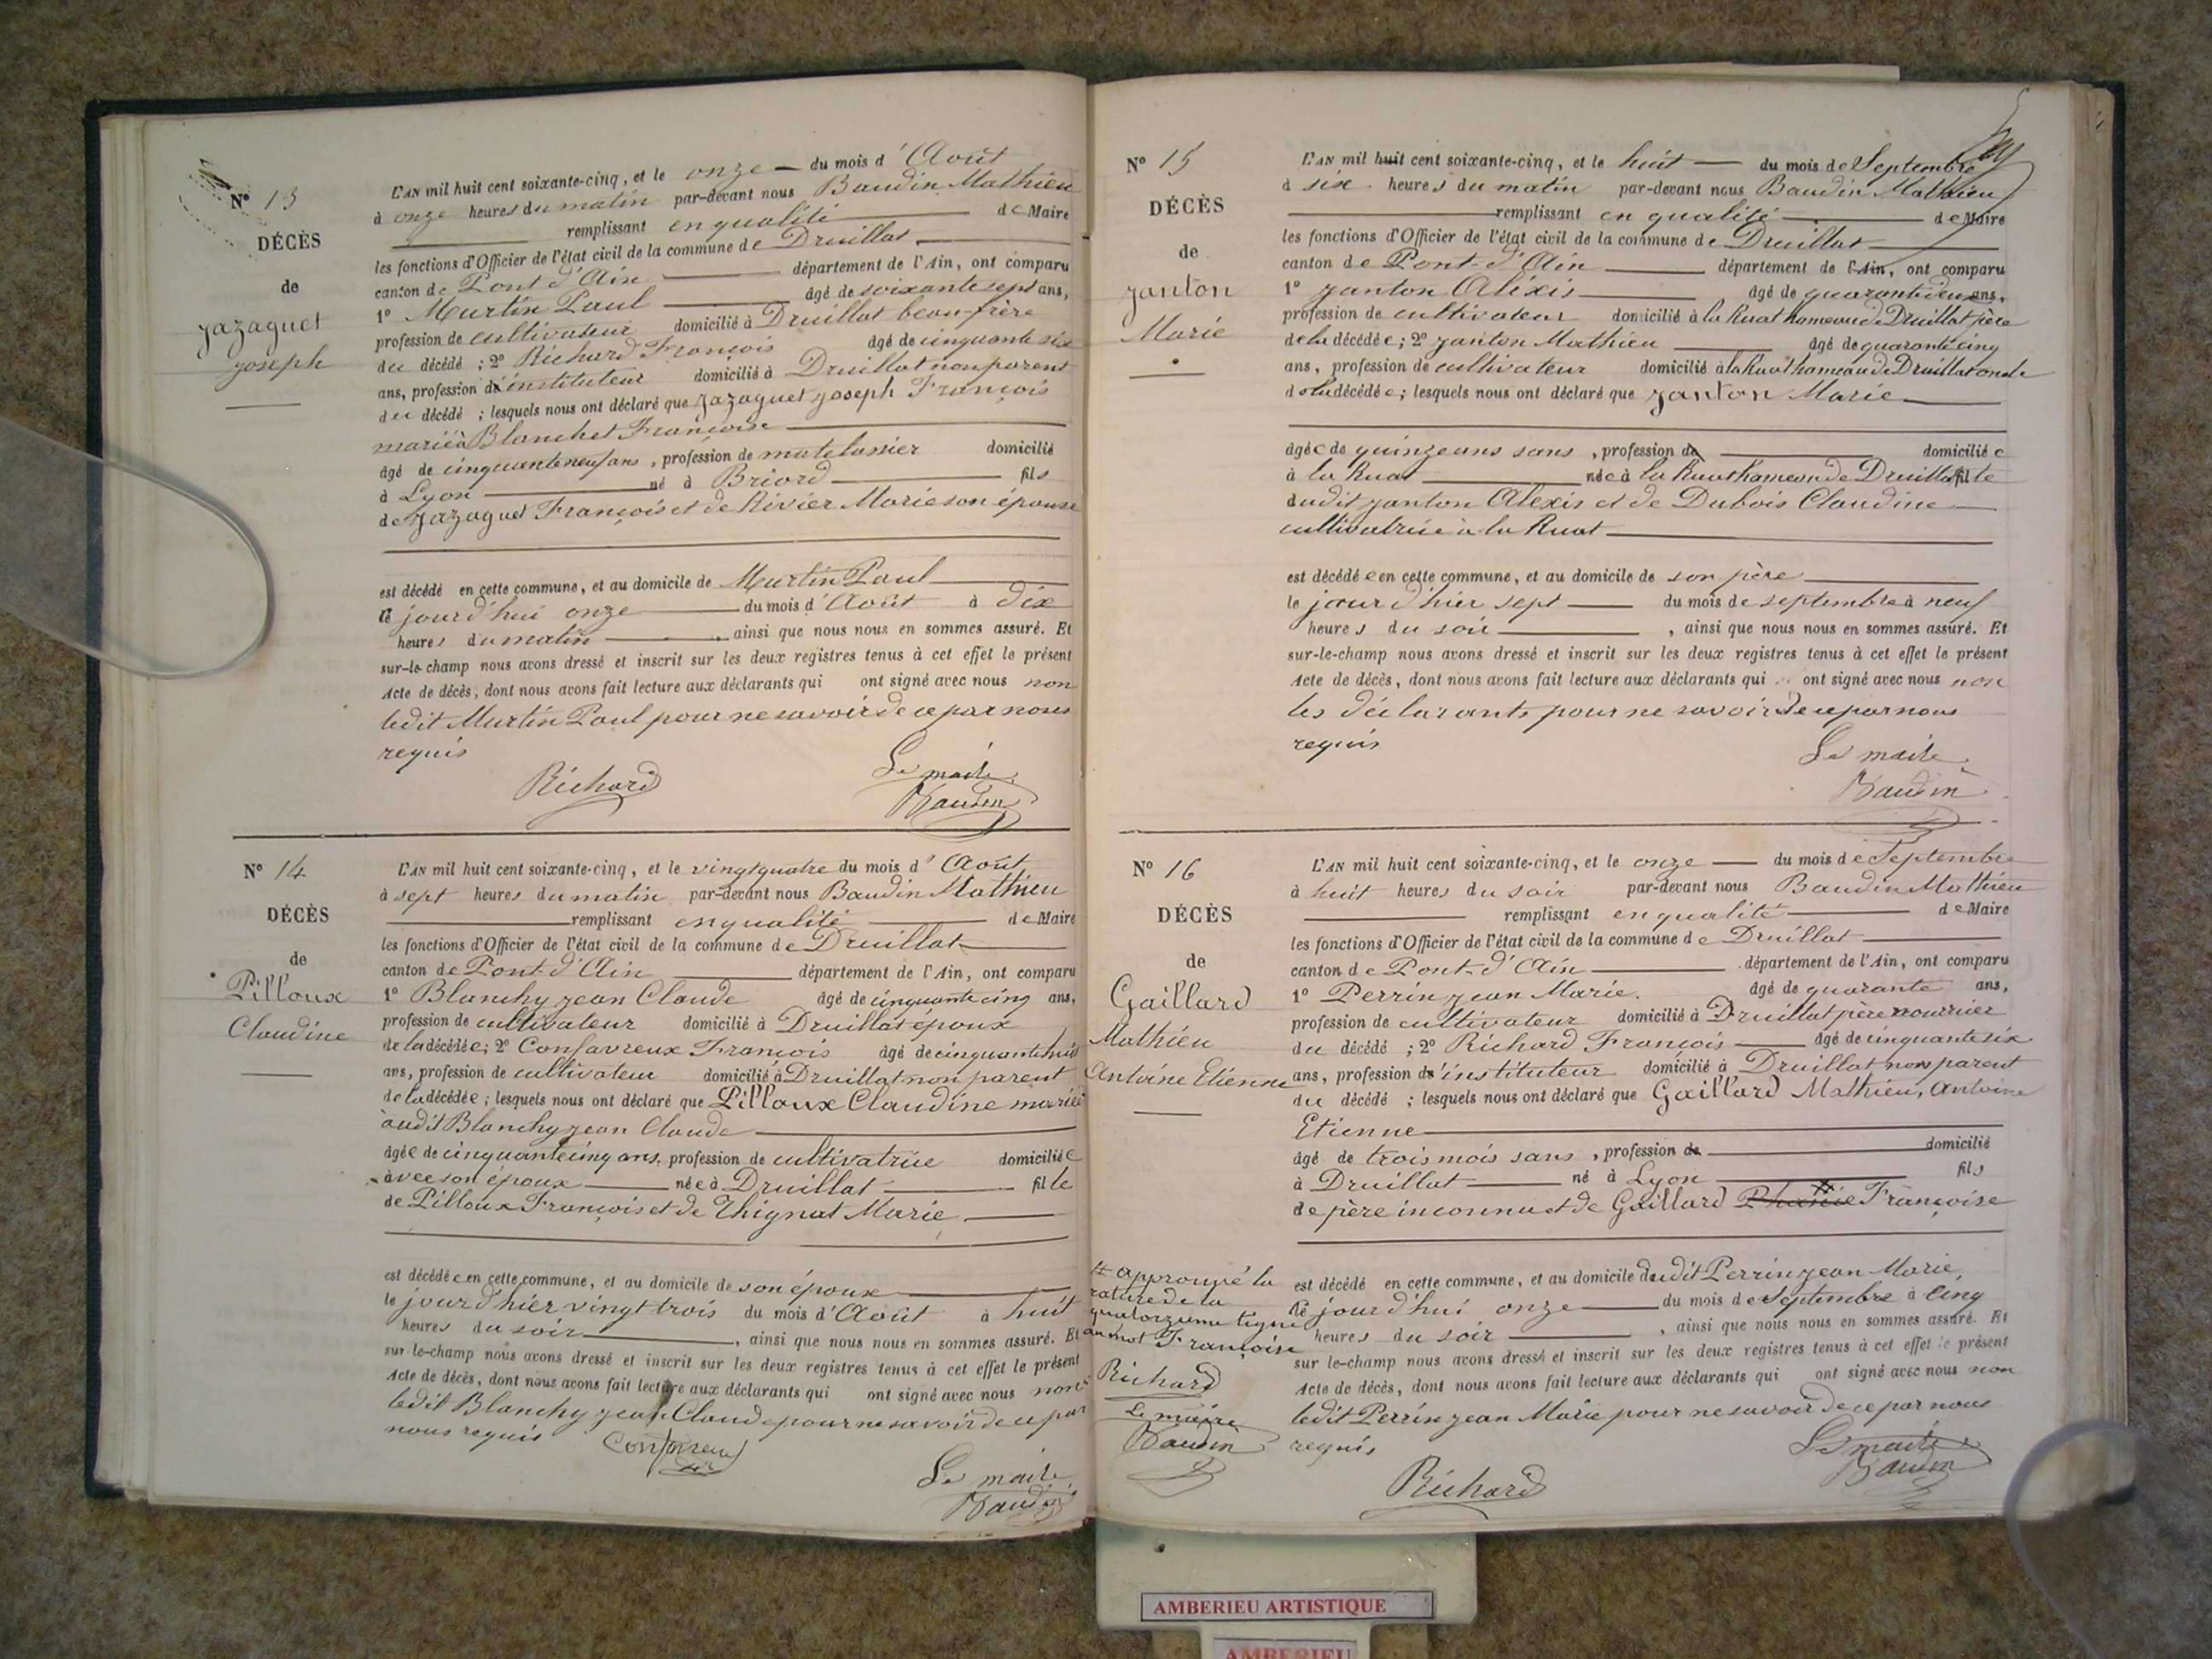 Nº 13
DÉCÈS
de
Jazaguet
Joseph
L'AN mil huit cent soixante-cinq, et le onze du mois d'Août
à onze heures du matin par-devant nous Baudin Mathieu
remplissant en qualité de Maire
les fonctions d'Officier de l'état civil de la commune de Druillat
canton de Pont d'Ain département de l'Ain, ont comparu
1º Martin Paul âgé de soixante sept ans,
profession de cultivateur domicilié à Druillat beau-frère
du décédé ; 2º Richard François âgé de cinquante six
ans, profession d'instituteur domicilié à Druillat non parent
du décédé ; lesquels nous ont déclaré que Jazaguet Joseph François
marié à Blanchet Françoise
âgé de cinquante neuf ans, profession de matelassier domicilié
à Lyon né à Briord fils
de Jazaguet François et de Rivier Marie son épouse
est décédé en cette commune, et au domicile de Martin Paul
le jourd'hui onze du mois d'Août à dix
heures du matin, ainsi que nous nous en sommes assuré. Et
sur-le-champ nous avons dressé et inscrit sur les deux registres tenus à cet effet le présent
Acte de décès, dont nous avons fait lecture aux déclarants qui ont signé avec nous non
ledit Martin Paul pour ne savoir de ce par nous
requis
Richard
Le maire
Baudin
Nº 14
DÉCÈS
de
Pilloux
Claudine
L'AN mil huit cent soixante-cinq, et le vingt quatre du mois d'Août
à sept heures du matin par-devant nous Baudin Mathieu
remplissant en qualité de Maire
les fonctions d'Officier de l'état civil de la commune de Druillat
canton de Pont-d'Ain département de l'Ain, ont comparu
1º Blanchy Jean Claude âgé de cinquante cinq ans,
profession de cultivateur domicilié à Druillat époux
de la décédée; 2º Confavreux François âgé de cinquante huit
ans, profession de cultivateur domicilié à Druillat non parent
de la décédée ; lesquels nous ont déclaré que Pilloux Claudine mariée
audit Blanchy Jean Claude
âgée de cinquante cinq ans, profession de cultivatrice domiciliée
avec son époux née à Druillat fille
de Pilloux François et de Thignat Marie
est décédée en cette commune, et au domicile de son époux
le jour d'hier vingt trois du mois d'Août à huit
heures du soir, ainsi que nous nous en sommes assuré. Et
sur-le-champ nous avons dressé et inscrit sur les deux registres tenus à cet effet le présent
Acte de décès, dont nous avons fait lecture aux déclarants qui ont signé avec nous non
ledit Blanchy Jean Claude pour ne savoir de ce par
nous requis
Confavreux
Le maire
Baudin
Nº 15
DÉCÈS
de
Janton
Marie
L'AN mil huit cent soixante-cinq, et le huit du mois de Septembre
à six heures du matin par-devant nous Baudin Mathieu
remplissant en qualité de Maire
les fonctions d'Officier de l'état civil de la commune de Druillat
canton de Pont-d'Ain département de l'Ain, ont comparu
1º Janton Alexis âgé de quarante deux ans,
profession de cultivateur domicilié à la Ruat hameau de Druillat père
de la décédée ; 2º Janton Mathieu âgé de quarante cinq
ans, profession de cultivateur domicilié à la Ruat hameau de Druillat oncle
de la décédée ; lesquels nous ont déclaré que Janton Marie
âgée de quinze ans sans, profession de domiciliée
à la Ruat née à la Ruat hameau de Druillat fille
dudit Janton Alexis et de Dubois Claudine
cultivatrice à la Ruat
est décédée en cette commune, et au domicile de son père
le jour d'hier sept du mois de septembre à neuf
heures du soir, ainsi que nous nous en sommes assuré. Et
sur-le-champ nous avons dressé et inscrit sur les deux registres tenus à cet effet le présent
Acte de décès, dont nous avons fait lecture aux déclarants qui ont signé avec nous non
les déclarants pour ne savoir de ce par nous
requis
Le maire
Baudin
Nº 16
DÉCÈS
de
Gaillard
Mathieu
Antoine Etienne
L'AN mil huit cent soixante-cinq, et le onze du mois de Septembre
à huit heures du soir par-devant nous Baudin Mathieu
remplissant en qualité de Maire
les fonctions d'Officier de l'état civil de la commune de Druillat
canton de Pont-d'Ain département de l'Ain, ont comparu
1º Perrin Jean Marie. âgé de quarante ans,
profession de cultivateur domicilié à Druillat père nourricier
du décédé ; 2º Richard François âgé de cinquante six
ans, profession d'instituteur domicilié à Druillat non parent
du décédé ; lesquels nous ont déclaré que Gaillard Mathieu, Antoine
Etienne
âgé de trois mois sans, profession de domicilié
à Druillat né à Lyon fils
de père inconnu et de Gaillard Françoise
est décédé en cette commune, et au domicile dudit Perrin Jean Marie,
le jourd'hui onze du mois de Septembre à cinq
heures du soir, ainsi que nous nous en sommes assuré. Et
sur le-champ nous avons dressé et inscrit sur les deux registres tenus à cet effet le présent
Acte de décès, dont nous avons fait lecture aux déclarants qui ont signé avec nous non
ledit Perrin Jean Marie pour ne savoir de ce par nous
requis
Richard
Le maire
Baudin
approuvé la
rature de la
quatorzième ligne
au mot Françoise
Richard
Le maire
Baudin
AMBERIEU ARTISTIQUE
AMBERIEU